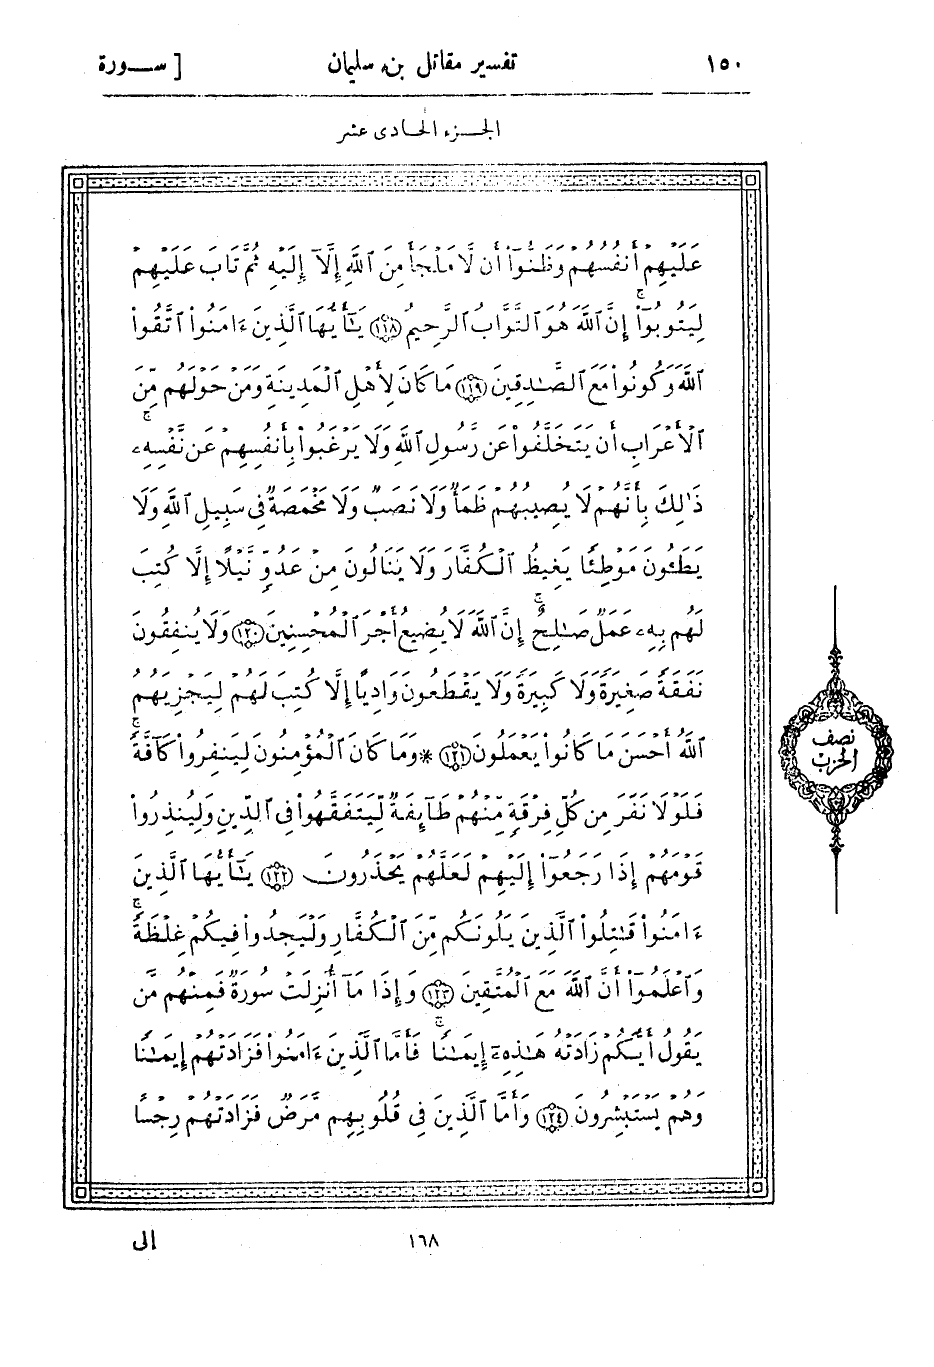 ١٥٠ تفسير مقاتل بن سليمان [ ســورة
الجــزء الحادى عشر
عَلَيْهِمْ أَنفُسُهُمْ وَظَنُّوٓا۟ أَن لَّا مَلْجَأَ مِنَ ٱللَّهِ إِلَّآ إِلَيْهِ ثُمَّ تَابَ عَلَيْهِمْ
لِيَتُوبُوٓا۟ ۚ إِنَّ ٱللَّهَ هُوَ ٱلتَّوَّابُ ٱلرَّحِيمُ ١١٨ يَـٰٓأَيُّهَا ٱلَّذِينَ ءَامَنُوا۟ ٱتَّقُوا۟
ٱللَّهَ وَكُونُوا۟ مَعَ ٱلصَّـٰدِقِينَ ١١٩ مَا كَانَ لِأَهْلِ ٱلْمَدِينَةِ وَمَنْ حَوْلَهُم مِّنَ
ٱلْأَعْرَابِ أَن يَتَخَلَّفُوا۟ عَن رَّسُولِ ٱللَّهِ وَلَا يَرْغَبُوا۟ بِأَنفُسِهِمْ عَن نَّفْسِهِۦ ۚ
ذَٰلِكَ بِأَنَّهُمْ لَا يُصِيبُهُمْ ظَمَأٌ وَلَا نَصَبٌ وَلَا مَخْمَصَةٌ فِى سَبِيلِ ٱللَّهِ وَلَا
يَطَـُٔونَ مَوْطِئًا يَغِيظُ ٱلْكُفَّارَ وَلَا يَنَالُونَ مِنْ عَدُوٍّ نَّيْلًا إِلَّا كُتِبَ
لَهُم بِهِۦ عَمَلٌ صَـٰلِحٌ ۚ إِنَّ ٱللَّهَ لَا يُضِيعُ أَجْرَ ٱلْمُحْسِنِينَ ١٢٠ وَلَا يُنفِقُونَ
نَفَقَةً صَغِيرَةً وَلَا كَبِيرَةً وَلَا يَقْطَعُونَ وَادِيًا إِلَّا كُتِبَ لَهُمْ لِيَجْزِيَهُمُ
ٱللَّهُ أَحْسَنَ مَا كَانُوا۟ يَعْمَلُونَ ١٢١ * وَمَا كَانَ ٱلْمُؤْمِنُونَ لِيَنفِرُوا۟ كَآفَّةً ۚ
فَلَوْلَا نَفَرَ مِن كُلِّ فِرْقَةٍ مِّنْهُمْ طَآئِفَةٌ لِّيَتَفَقَّهُوا۟ فِى ٱلدِّينِ وَلِيُنذِرُوا۟
قَوْمَهُمْ إِذَا رَجَعُوٓا۟ إِلَيْهِمْ لَعَلَّهُمْ يَحْذَرُونَ ١٢٢ يَـٰٓأَيُّهَا ٱلَّذِينَ
ءَامَنُوا۟ قَـٰتِلُوا۟ ٱلَّذِينَ يَلُونَكُم مِّنَ ٱلْكُفَّارِ وَلْيَجِدُوا۟ فِيكُمْ غِلْظَةً ۚ
وَٱعْلَمُوٓا۟ أَنَّ ٱللَّهَ مَعَ ٱلْمُتَّقِينَ ١٢٣ وَإِذَا مَآ أُنزِلَتْ سُورَةٌ فَمِنْهُم مَّن
يَقُولُ أَيُّكُمْ زَادَتْهُ هَـٰذِهِۦٓ إِيمَـٰنًا ۚ فَأَمَّا ٱلَّذِينَ ءَامَنُوا۟ فَزَادَتْهُمْ إِيمَـٰنًا
وَهُمْ يَسْتَبْشِرُونَ ١٢٤ وَأَمَّا ٱلَّذِينَ فِى قُلُوبِهِم مَّرَضٌ فَزَادَتْهُمْ رِجْسًا
نصف
الحزب
١٦٨ إلى